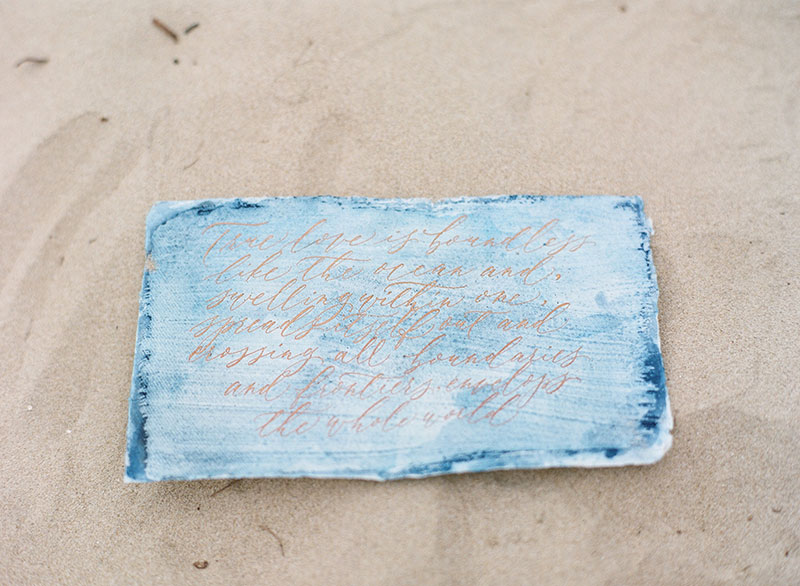 True love is boundless
like the ocean and,
swelling within one,
spreads itself out and
crossing all boundaries
and frontiers, envelops
the whole world